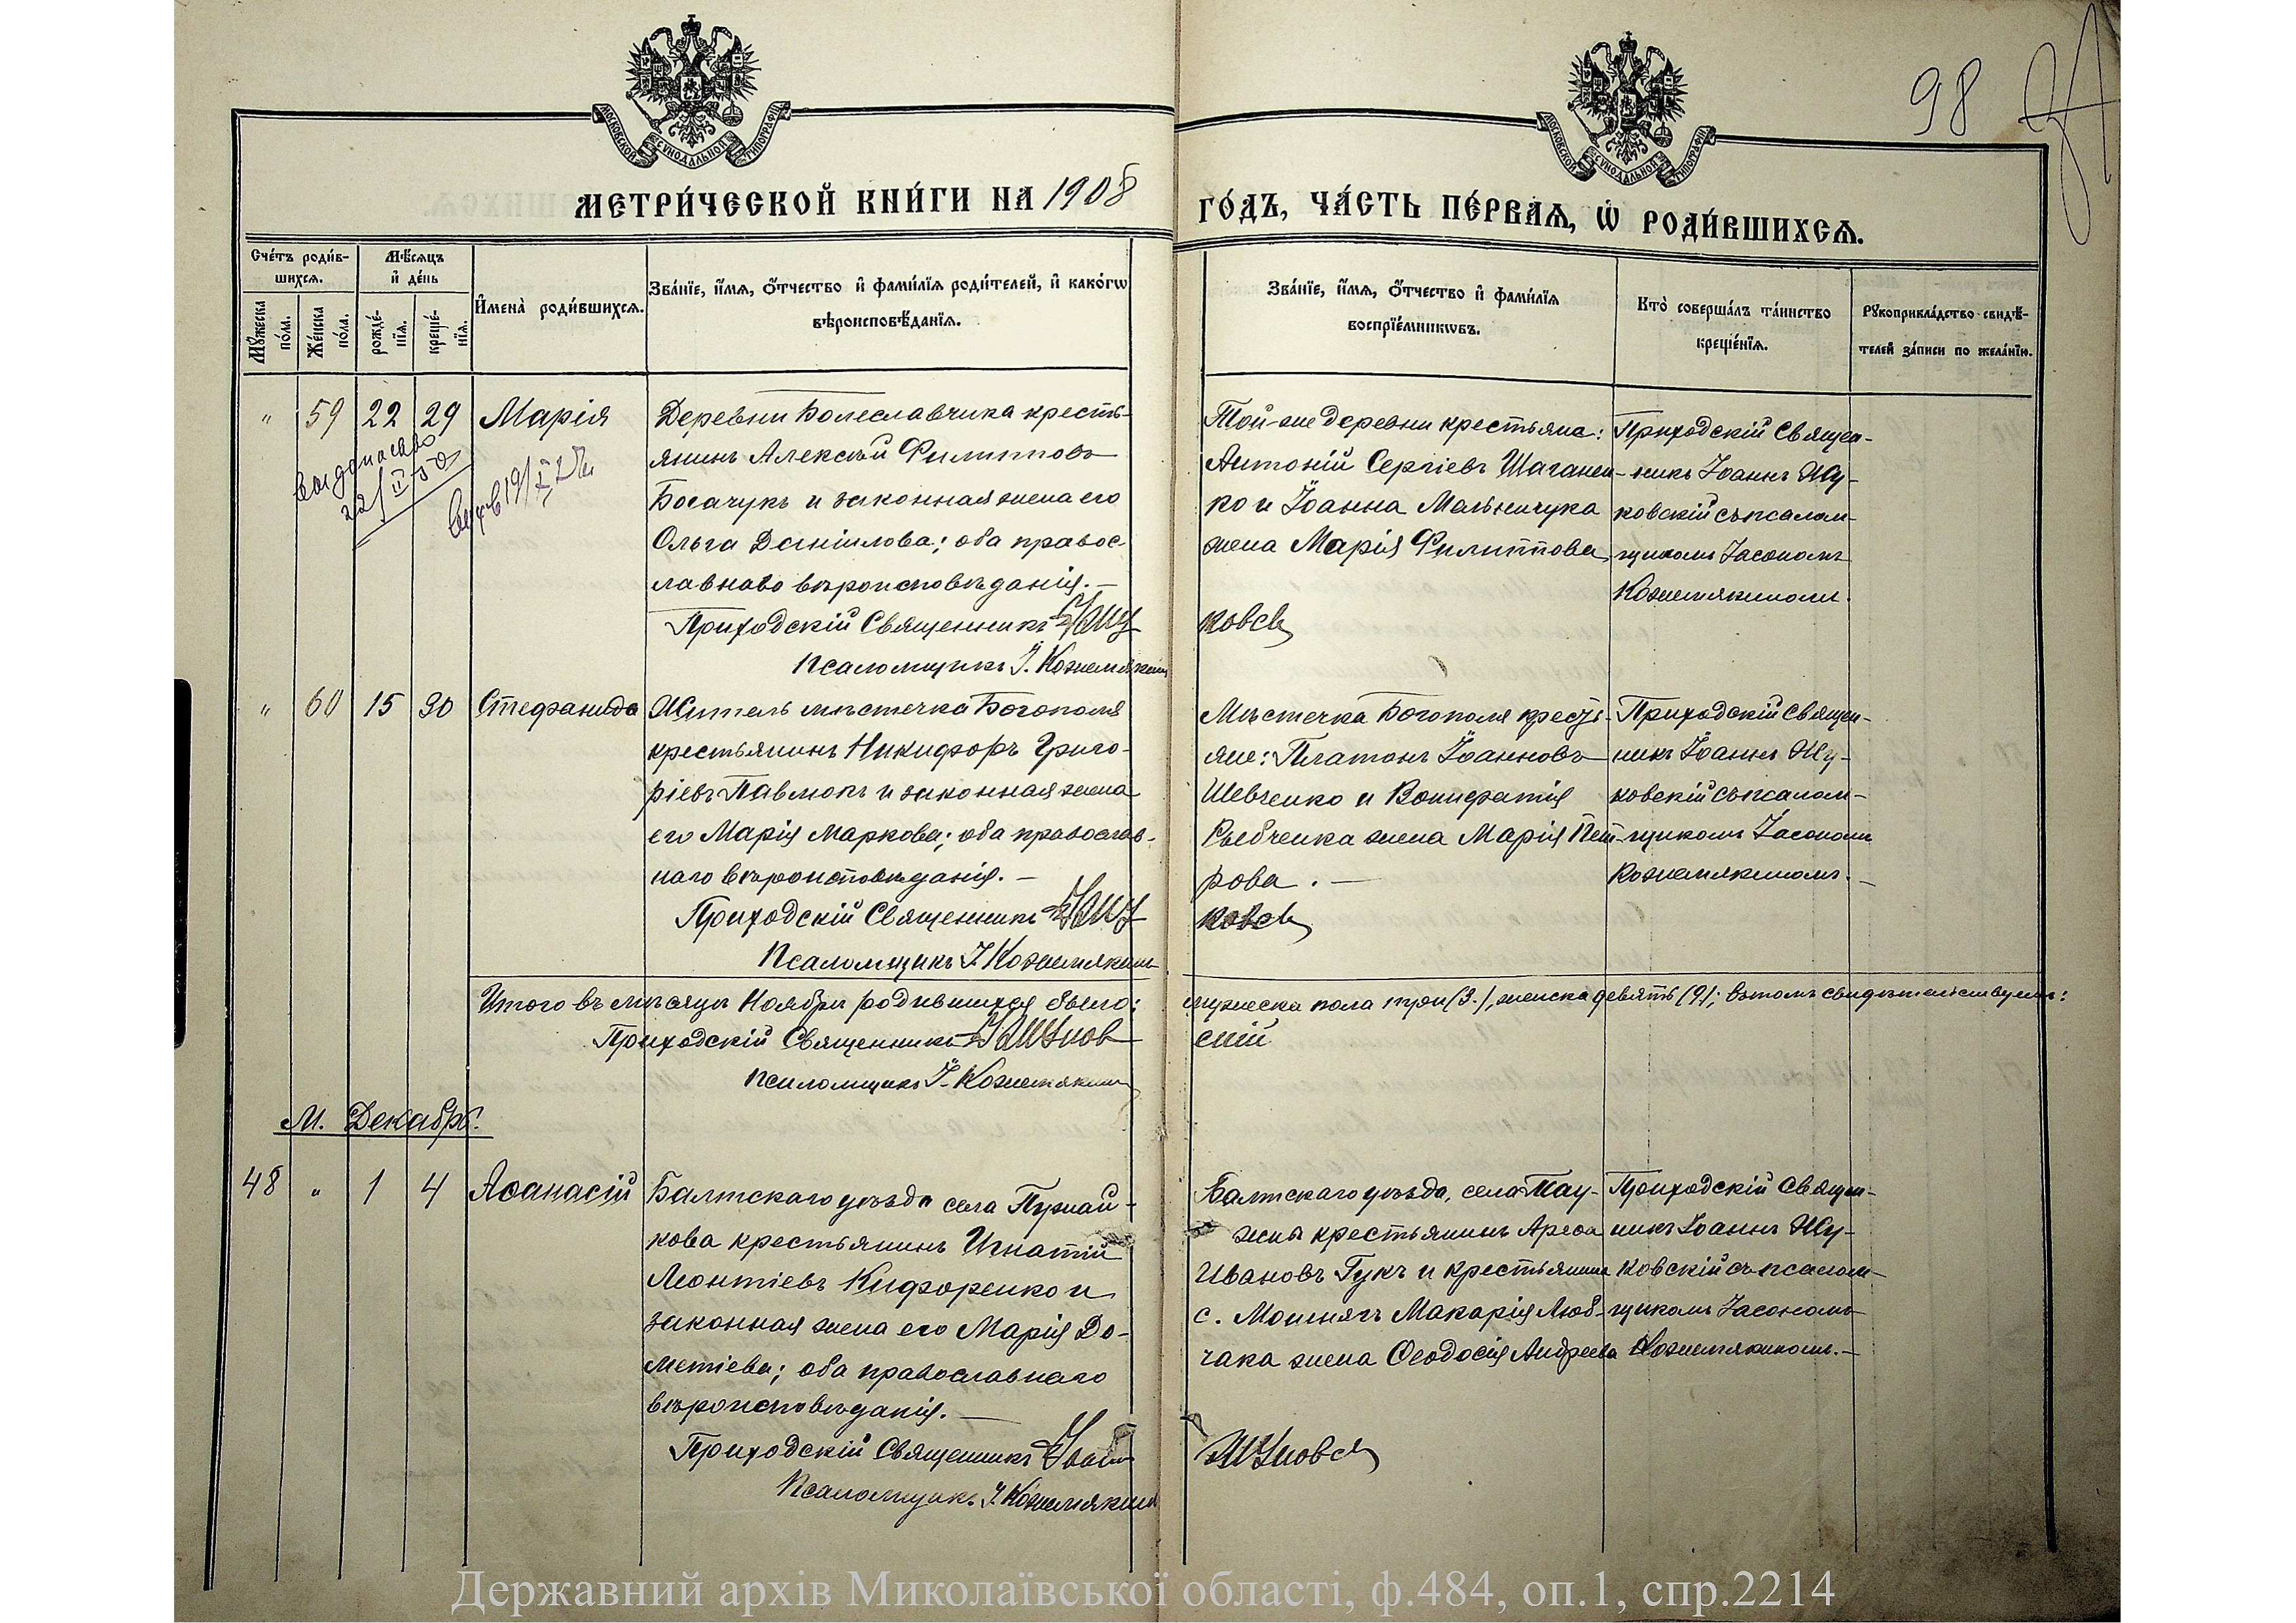 98
МОСКОВСКОЙ СУНОДАЛЬНОЙ ТИПОГРАФІИ
МОСКОВСКОЙ СУНОДАЛЬНОЙ ТИПОГРАФІИ
МЕТРИ́ЧЕСКОЙ КНИ́ГИ НА 1908
ГО́ДЪ, ЧА́СТЬ ПЕ́РВАѦ, Ѡ҆ РОДИ́ВШИХСѦ.
Сче́тъ роди́в-
шихсѧ.
Мꙋ́жеска
по́ла.
Же́нска
по́ла.
Мѣ́сѧцъ
и҆ де́нь
рожде́-
нїѧ.
креще́-
нїѧ.
И҆мена̀ роди́вшихсѧ.
Зва́нїе, и҆́мѧ, ѻ҆́тчество и҆ фами́лїѧ роди́телей, и҆ како́гѡ
вѣроисповѣ́данїѧ.
Зва́нїе, и҆́мѧ, ѻ҆́тчество и҆ фами́лїѧ
воспрїе́мникѡвъ.
Кто̀ соверша́лъ та́инство
креще́нїѧ.
Рꙋкоприкла́дство свидѣ́-
телей за́писи по жела́нїю.
" 59 22 29 Марія
22/II 50
19/X
Деревни Болеславчика кресть-
янинъ Алексѣй Филипповъ
Богачукъ и законная жена его
Ольга Даніилова; оба правос-
лавнаго вѣроисповѣданія.—
Приходскій Священникъ
Псаломщикъ І. Кожемякинъ
Той-же деревни крестьяне:
Антоній Сергіевъ Шаганен-
ко и Іоанна Мельничука
жена Марія Филиппова
ковск
Приходскій Священ-
никъ Іоаннъ Жу-
ковскій съ псалом-
щикомъ Іасономъ
Кожемякиномъ.
" 60 15 30 Стефанида
Житель мѣстечка Богополя
крестьянинъ Никифоръ Григо-
ріевъ Павлюкъ и законная жена
его Марія Маркова; оба православ-
наго вѣроисповѣданія.—
Приходскій Священникъ
Псаломщикъ І. Кожемякинъ
Мѣстечка Богополя кресть-
яне: Платонъ Іоанновъ
Шевченко и Вонифатія
жена Марія Пет-
рова.—
ковск
Приходскій Священ-
никъ Іоаннъ Жу-
ковскій съ псалом-
щикомъ Іасономъ
Кожемякиномъ.—
Итого въ мѣсяцѣ Ноябрѣ родившихся было: мужеска пола три (3.), женска девять (9); въ томъ свидѣтельствуемъ:
Приходскій Священникъ І. Жуков
скій
Псаломщикъ І. Кожемякинъ
М. Декабрь.
48 " 1 4 Аѳанасій
Балтскаго уѣзда села Пужай-
кова крестьянинъ Игнатій
Леонтіевъ Кифоренко и
законная жена его Марія До-
метіева; оба православнаго
вѣроисповѣданія.—
Приходскій Священникъ
Псаломщикъ І. Кожемякинъ
Балтскаго уѣзда, села
жны крестьянинъ Арефа
Ивановъ Гукъ и крестьянина
с. Мошнягъ Макарія Люб-
чака жена Ѳеодосія Андреева
Жуковск
Приходскій Священ-
никъ Іоаннъ Жу-
ковскій съ псалом-
щикомъ Іасономъ
Кожемякиномъ.—
Державний архів Миколаївської області, ф.484, оп.1, спр.2214